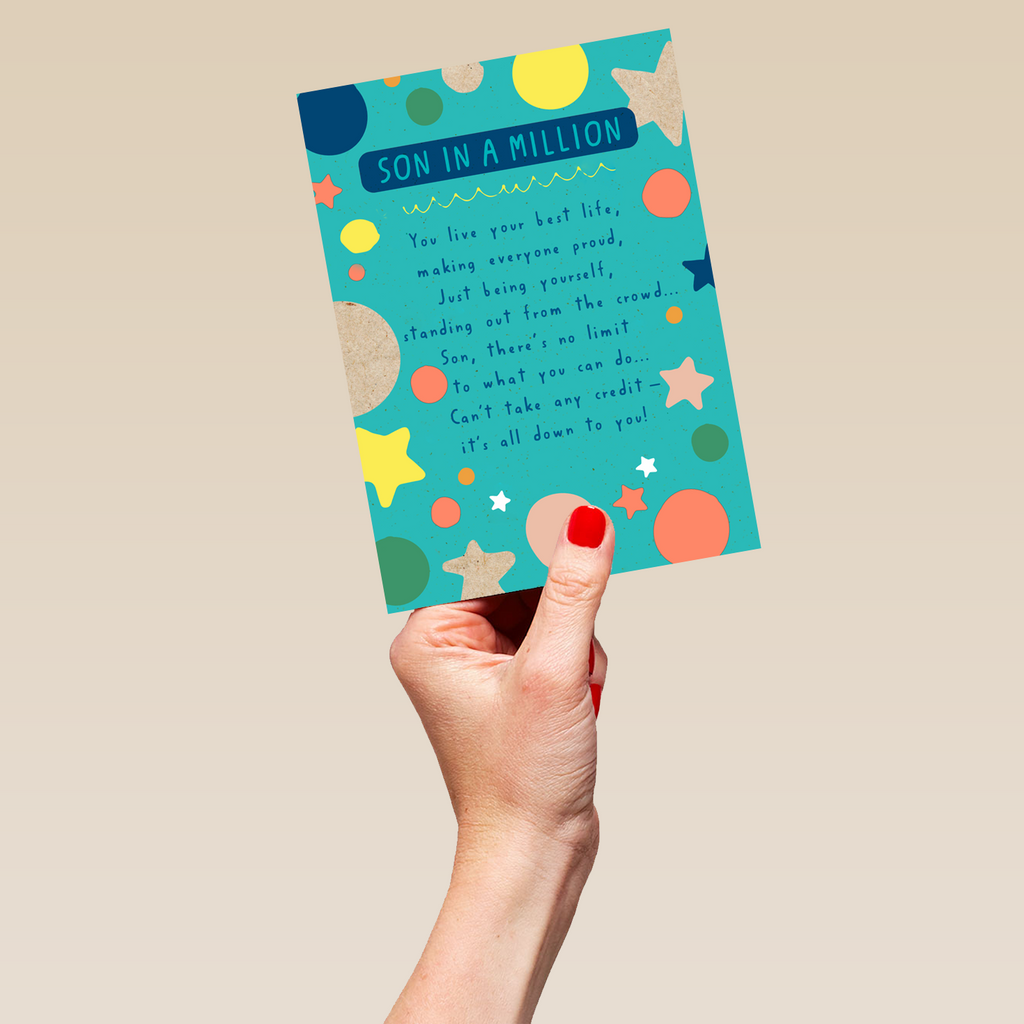 SON IN A MILLION
You live your best life,
making everyone proud,
Just being yourself,
standing out from the crowd...
Son, there's no limit
to what you can do...
Can't take any credit –
it's all down to you!